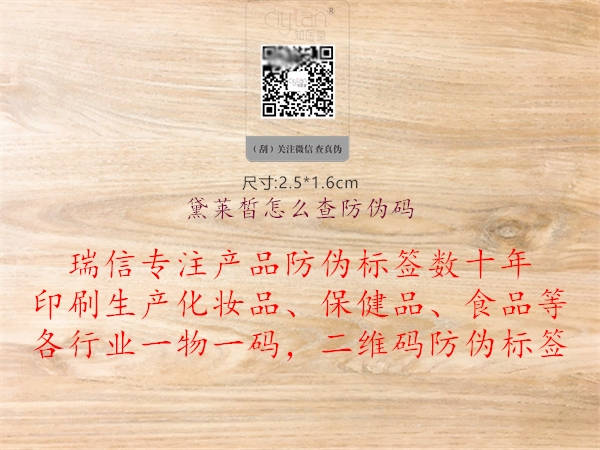 （刮）关注微信 查真伪
尺寸:2.5*1.6cm
黛莱皙怎么查防伪码
瑞信专注产品防伪标签数十年
印刷生产化妆品、保健品、食品等
各行业一物一码，二维码防伪标签